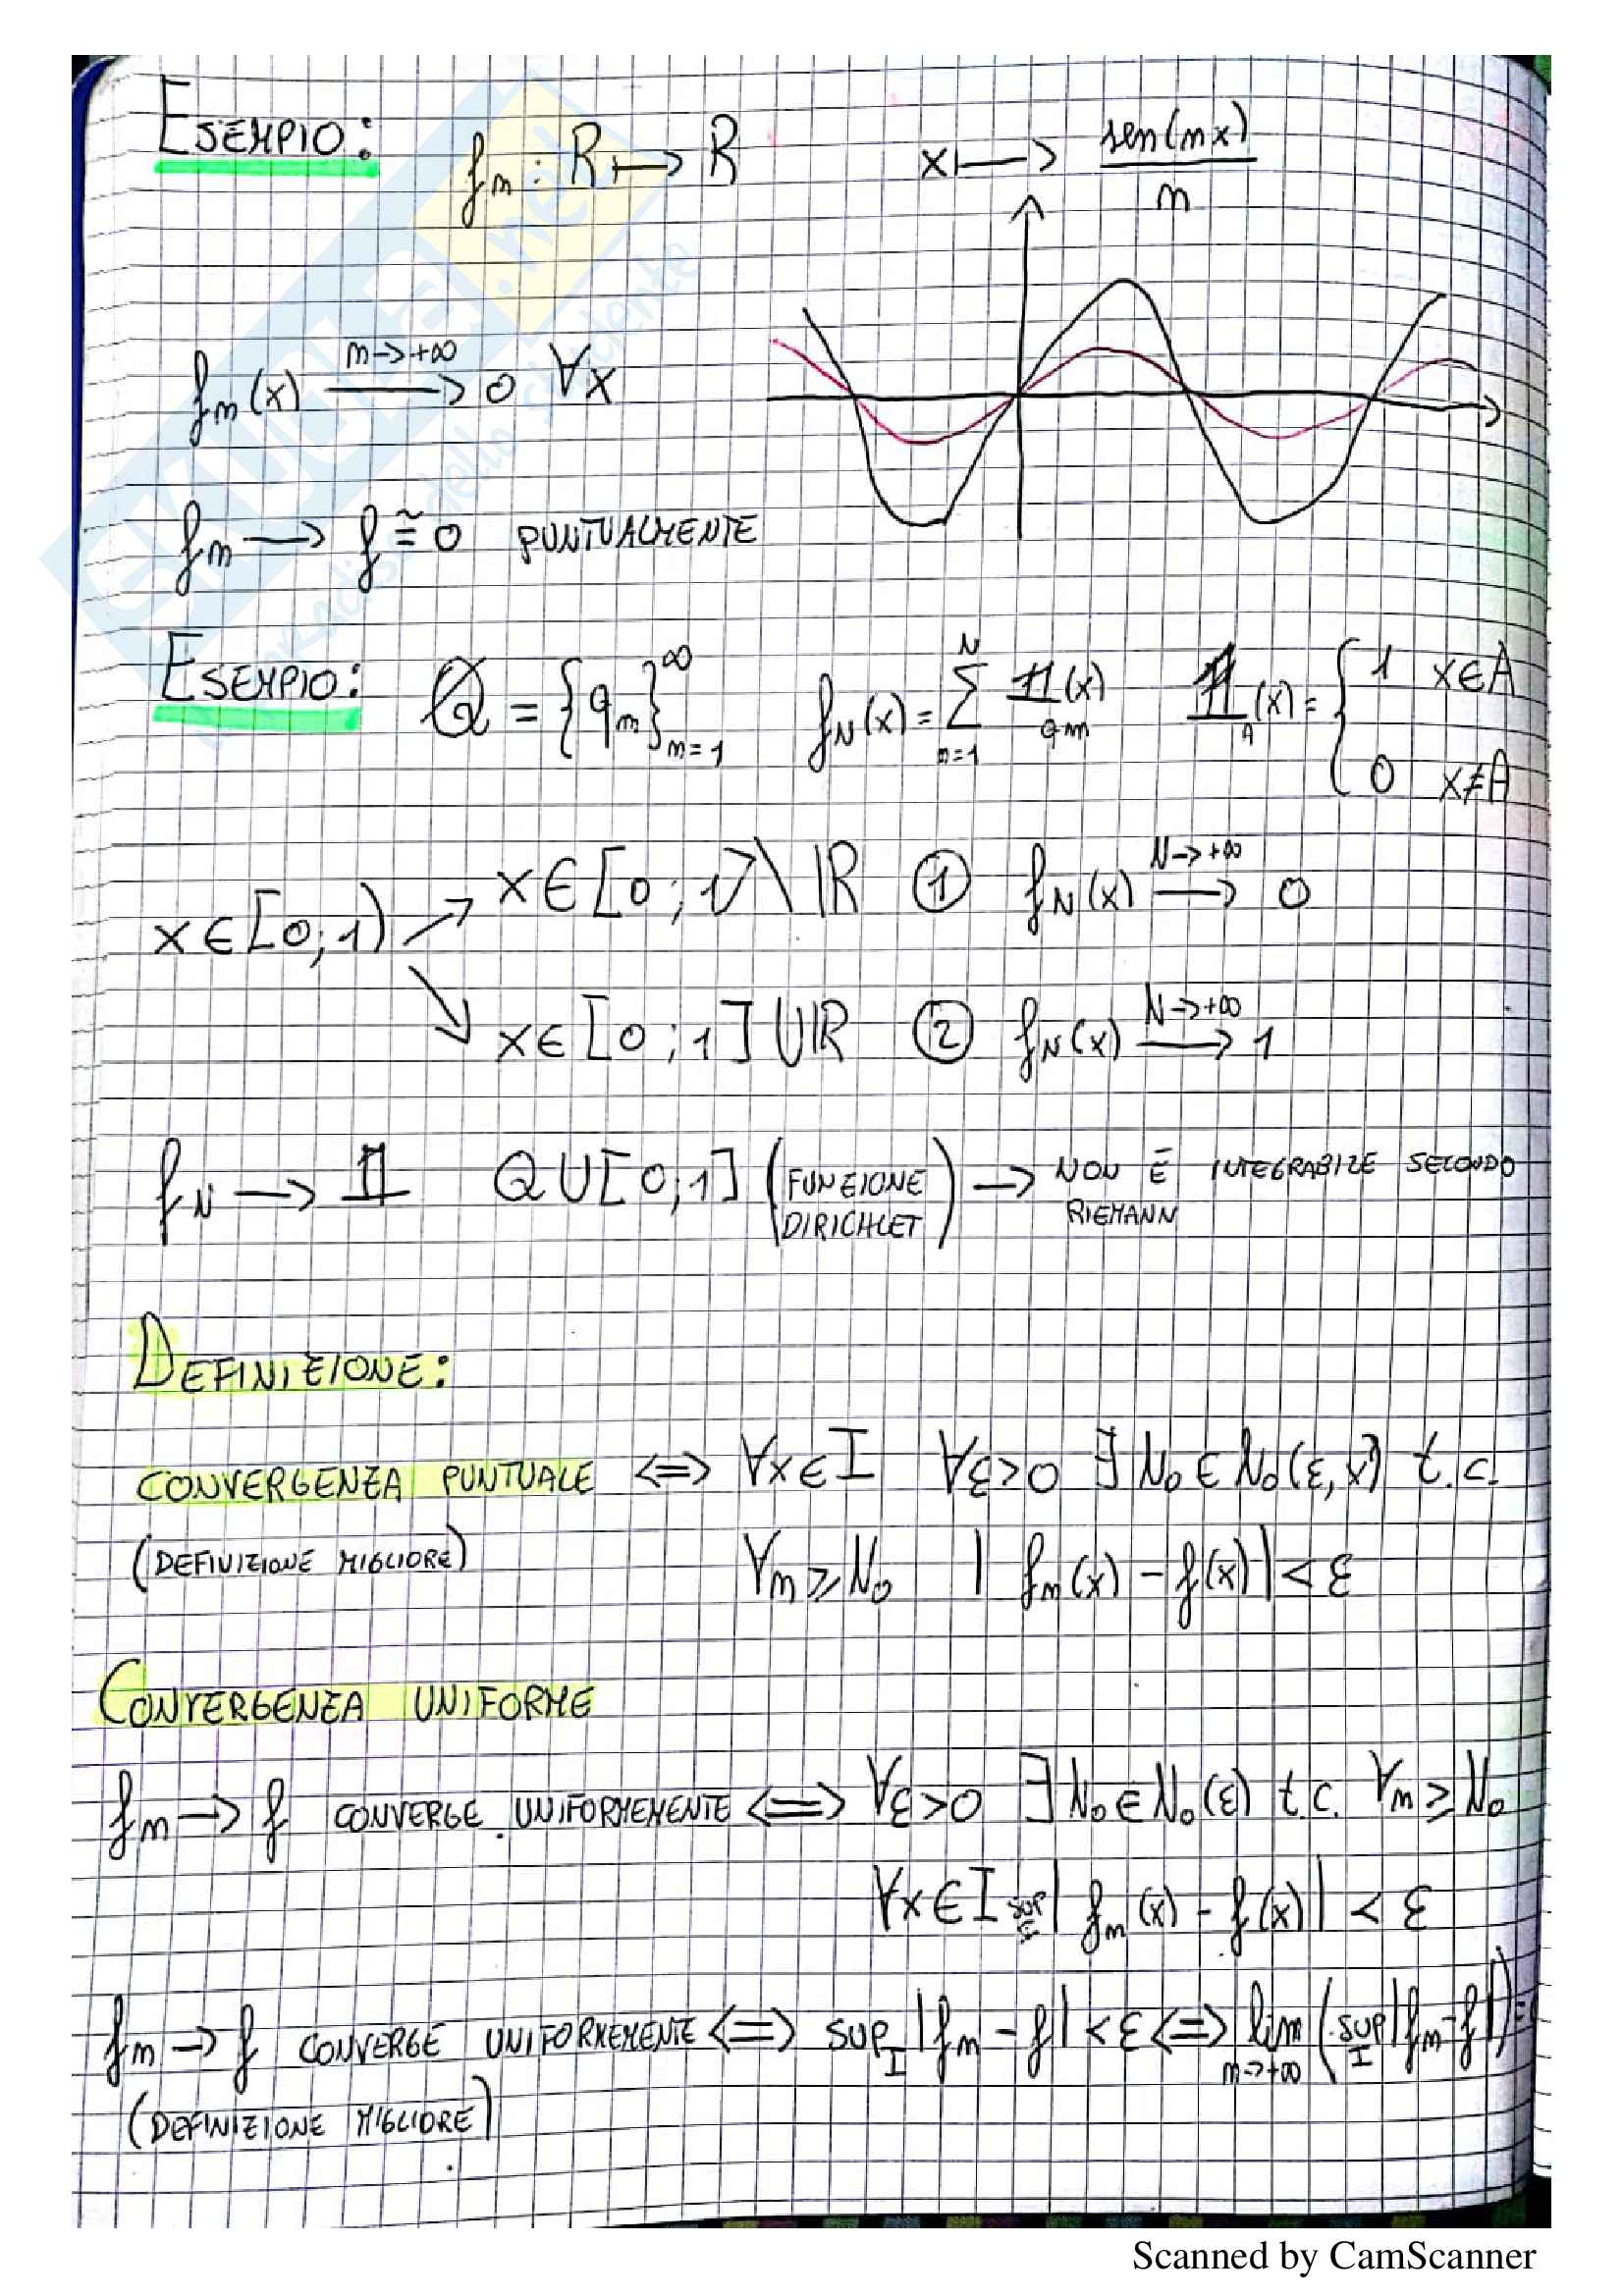 ESEMPIO: fn : R ↦ R x ↦ sen(nx)/n
fn(x) n→+∞ → 0 ∀x
fn → f ≅ 0 PUNTUALMENTE
ESEMPIO: Q = {qn}∞n=1 fN(x) = ∑N n=1 𝟙qn(x) 𝟙A(x) = { 1 x∈A
0 x∉A
x∈[0;1) \ ℝ ① fN(x) N→+∞ → 0
x∈[0;1)
x∈[0;1] ∪ ℝ ② fN(x) N→+∞ → 1
fN → 𝟙 Q∪[0;1] (FUNZIONE DIRICHLET) → NON È INTEGRABILE SECONDO
RIEMANN
DEFINIZIONE:
CONVERGENZA PUNTUALE ⇔ ∀x∈I ∀ε>0 ∃ N₀∈N₀(ε,x) t.c.
(DEFINIZIONE MIGLIORE) ∀n≥N₀ | fn(x) - f(x)| < ε
CONVERGENZA UNIFORME
fn → f CONVERGE UNIFORMEMENTE ⇔ ∀ε>0 ∃ N₀∈N₀(ε) t.c. ∀n≥N₀
∀x∈I sup I | fn(x) - f(x)| < ε
fn → f CONVERGE UNIFORMEMENTE ⇔ SUP I |fn - f| < ε ⇔ lim n→+∞ (SUP I |fn - f|) =
(DEFINIZIONE MIGLIORE)
Scanned by CamScanner